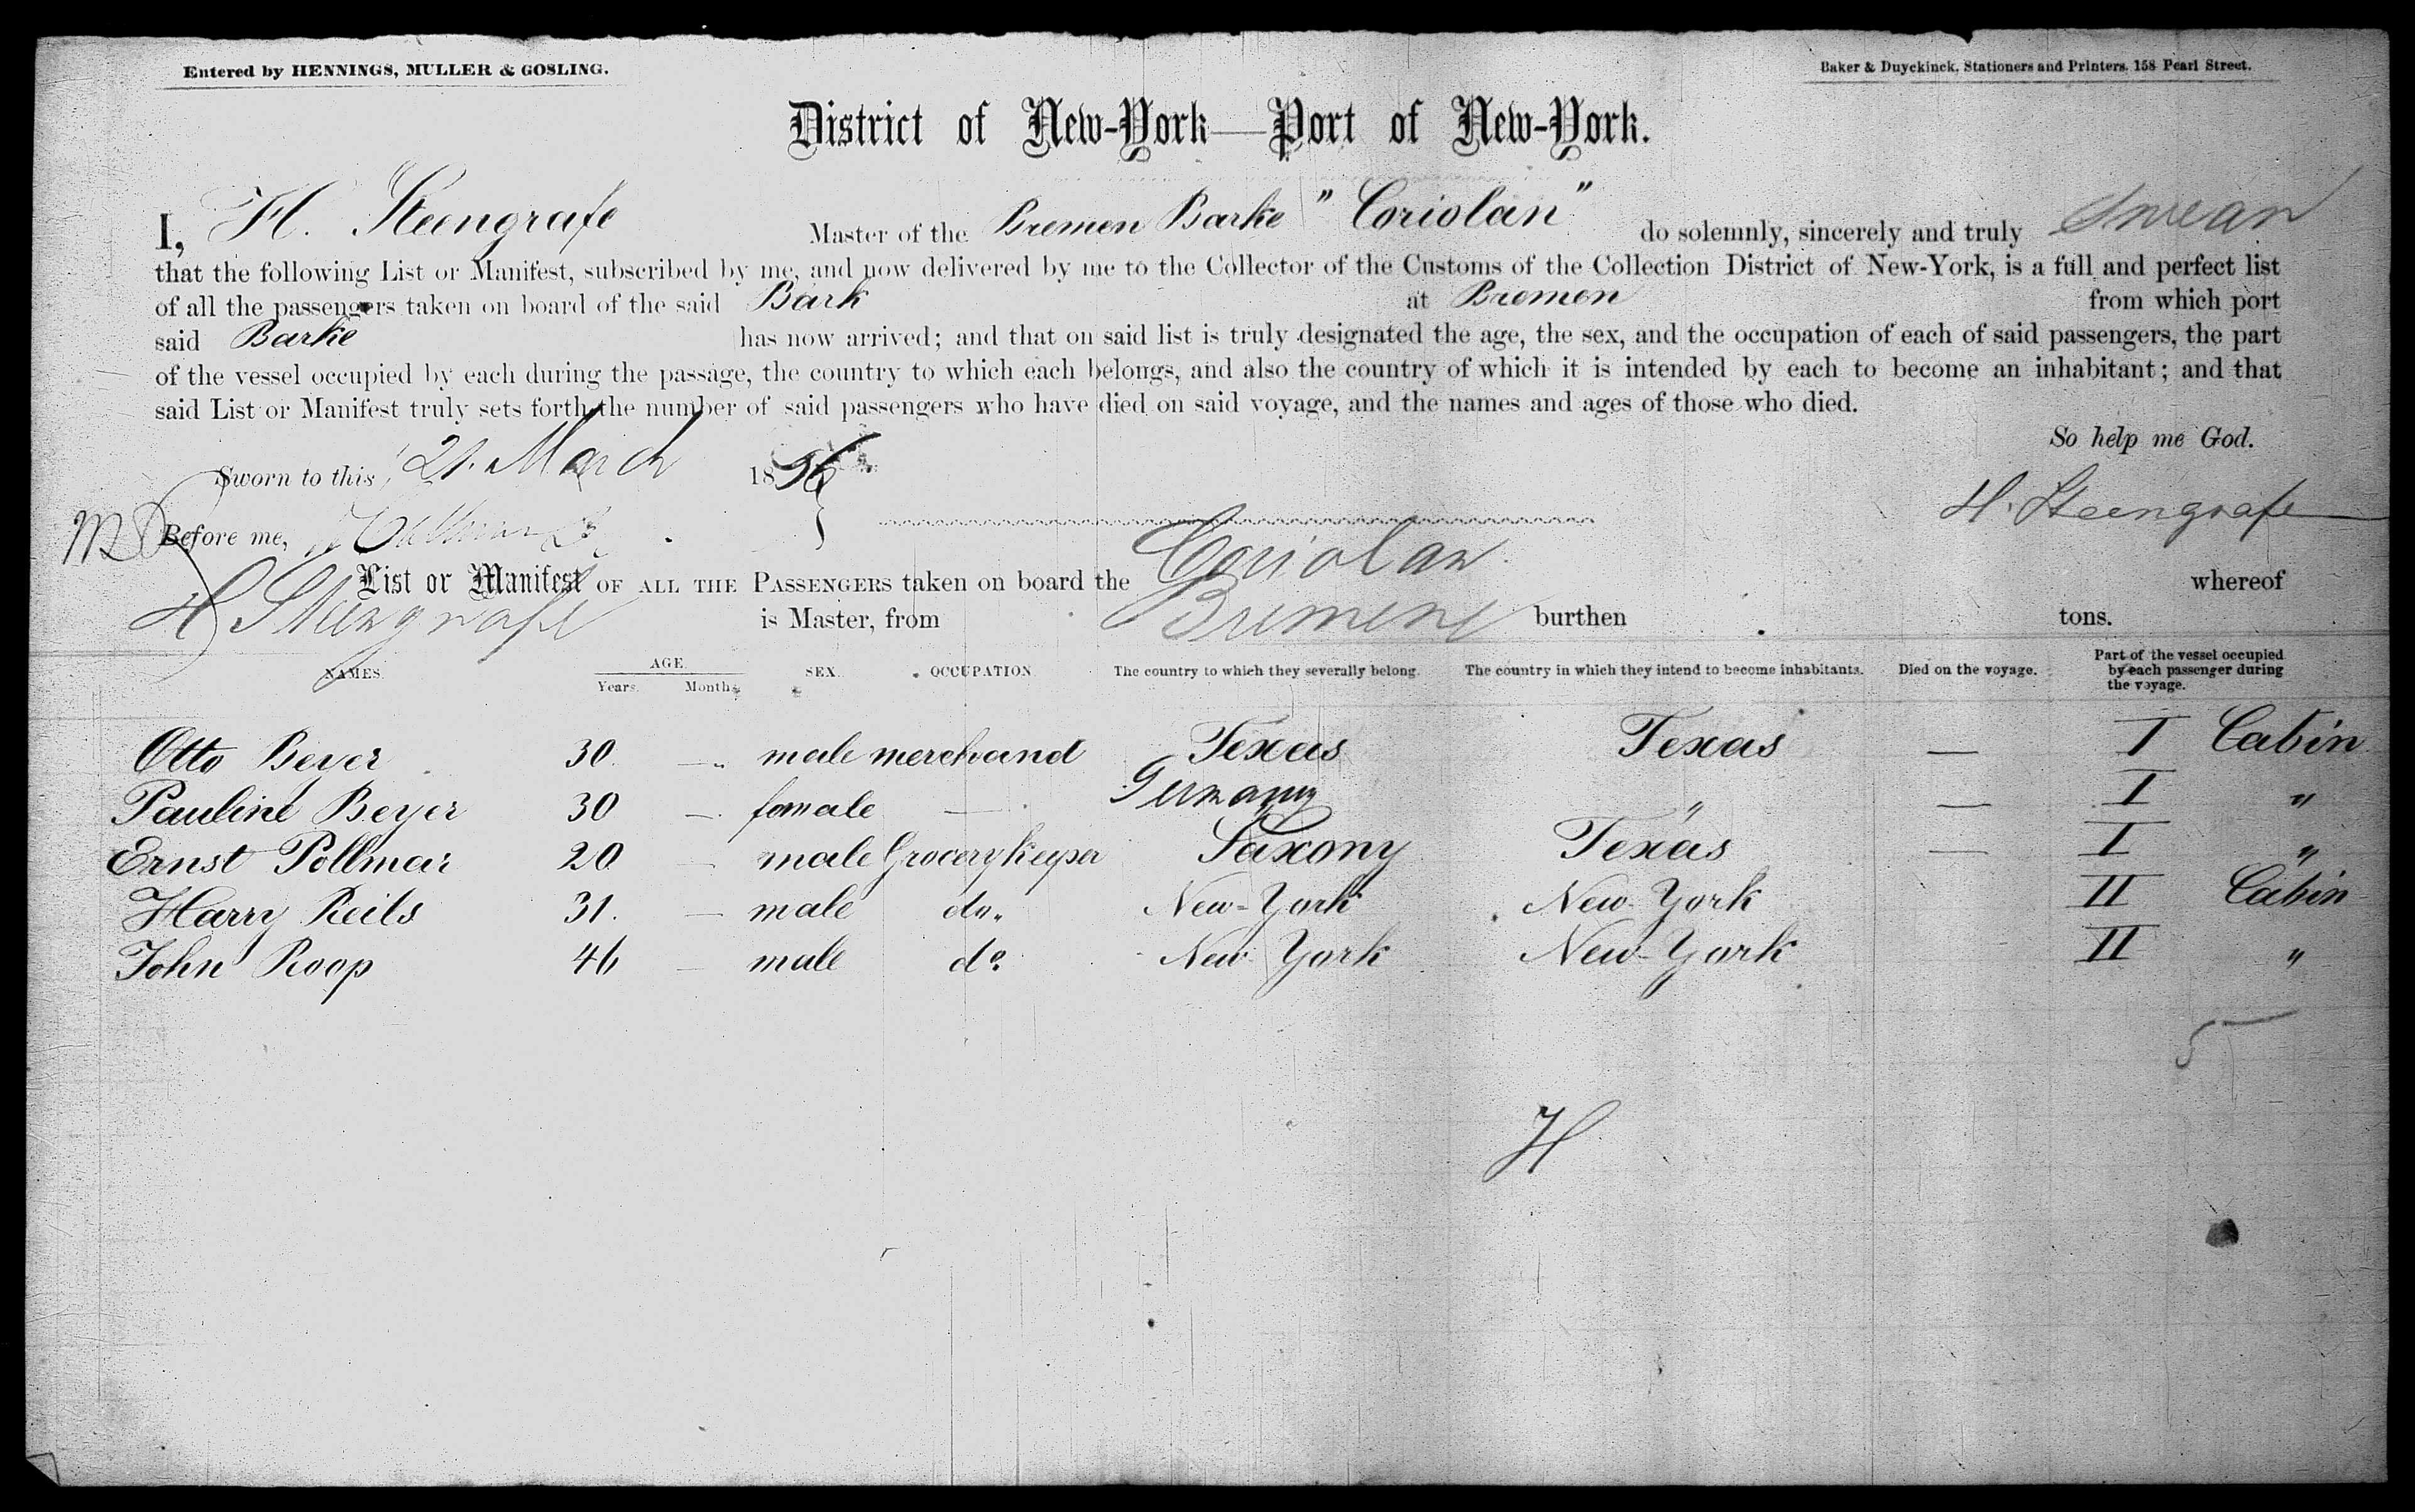 Entered by HENNINGS, MULLER & GOSLING.
Baker & Duyckinck, Stationers and Printers, 158 Pearl Street.
District of New-York—Port of New-York.
I, H. Steengrafe Master of the Bremen Barke "Coriolan" do solemnly, sincerely and truly Swear
that the following List or Manifest, subscribed by me, and now delivered by me to the Collector of the Customs of the Collection District of New-York, is a full and perfect list
of all the passengers taken on board of the said Bark at Bremen from which port
said Barke has now arrived; and that on said list is truly designated the age, the sex, and the occupation of each of said passengers, the part
of the vessel occupied by each during the passage, the country to which each belongs, and also the country of which it is intended by each to become an inhabitant; and that
said List or Manifest truly sets forth the number of said passengers who have died on said voyage, and the names and ages of those who died.
So help me God.
Sworn to this 21. March 1856
H. Steengrafe
Before me,
List or Manifest OF ALL THE PASSENGERS taken on board the Coriolan whereof
H Steengrafe is Master, from Bremen burthen tons.
NAMES. AGE. Years. Months. SEX. OCCUPATION. The country to which they severally belong. The country in which they intend to become inhabitants. Died on the voyage. Part of the vessel occupied by each passenger during the voyage.
Otto Beyer 30 — male merchand Texas Texas — I Cabin
Pauline Beyer 30 — female — Germany " — I "
Ernst Pollmar 20 — male Grocerykeeper Saxony Texas — I "
Harry Reils 31. — male do. New-York New-York II Cabin
John Roop 46 — male do. New York New-York II "
5
H